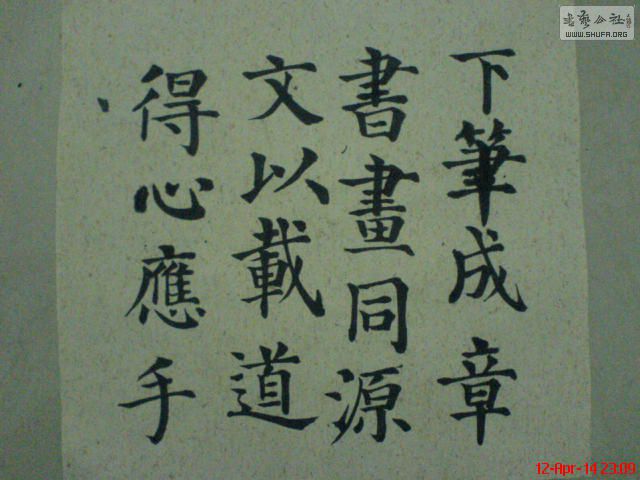 下筆成章
書畫同源
文以載道
得心應手
書藝公社
WWW.SHUFA.ORG
12-Apr-14 23:09